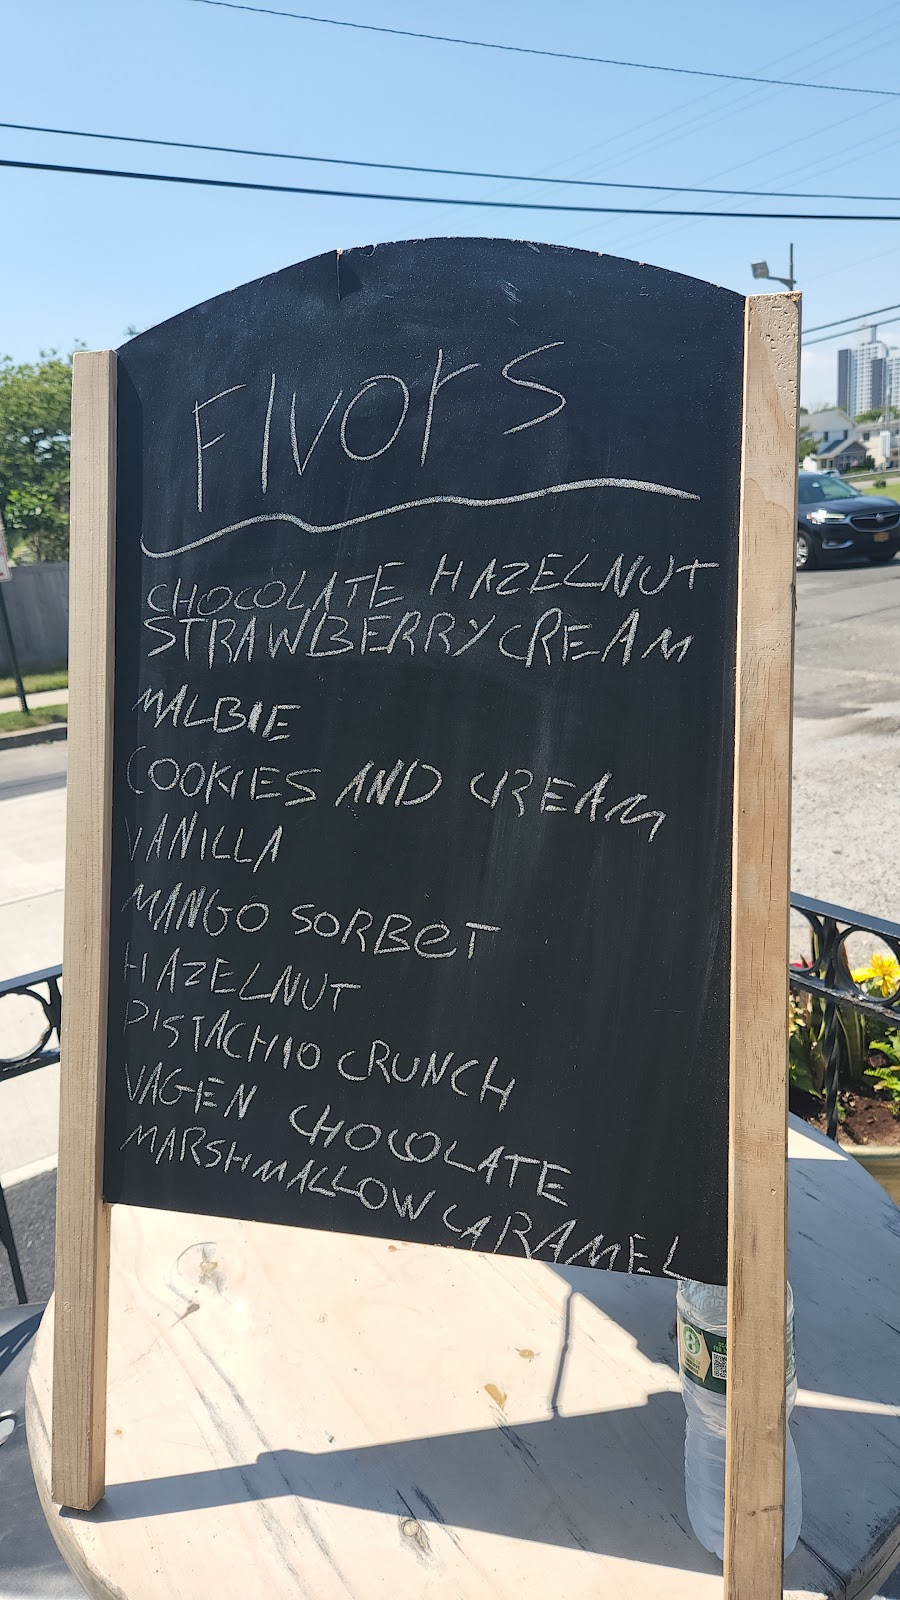 Flvors
CHOCOLATE HAZELNUT
STRAWBERRY CREAM
MALBIE
COOKIES AND CREAM
VANILLA
MANGO SORBET
HAZELNUT
PISTACHIO CRUNCH
VAGEN CHOCOLATE
MARSHMALLOW CARAMEL